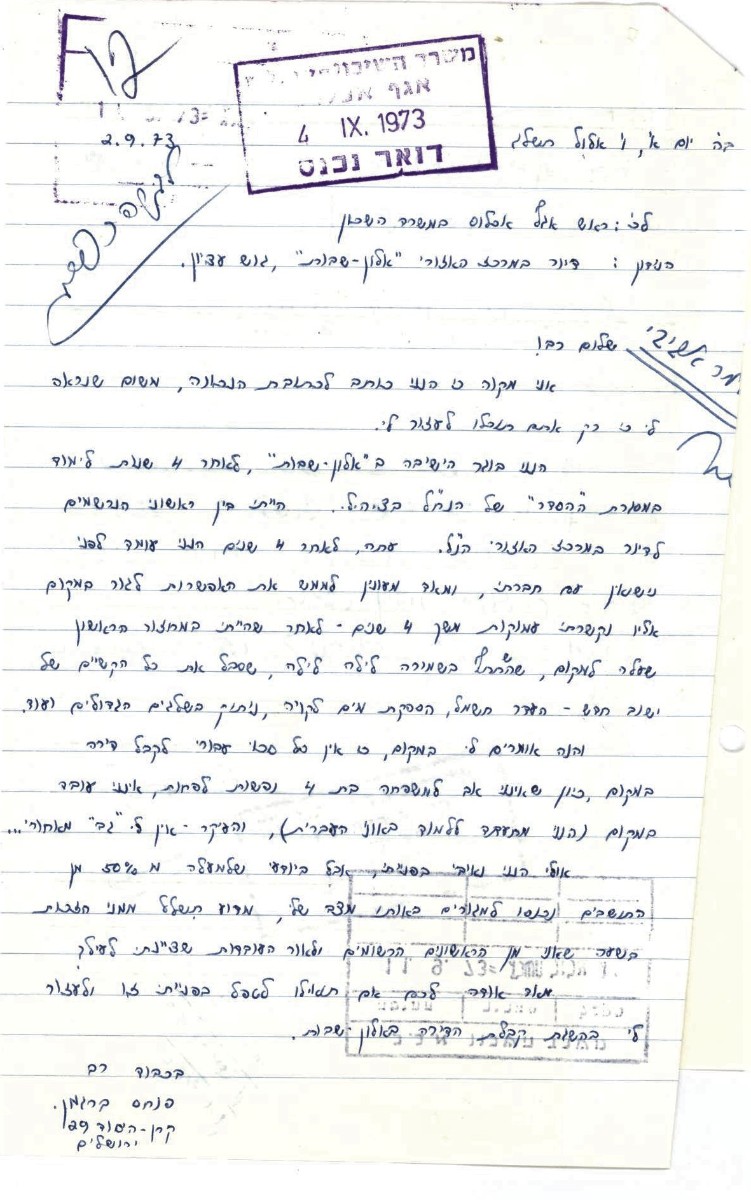 משרד השיכון
אגף
4 IX. 1973
דואר נכנס
2.9.73
ב"ה יום א', ו' אלול תשל"ג
לכ': ראש אגף אכלוס במשרד השכון
הנידון: דיור במרכז האזורי "אלון-שבות", גוש עציון.
שלום רב!
אני מקוה כי הנני כותב לכתובת הנכונה, משום שנראה
לי כי רק אתם תוכלו לעזור לי.
הנני בוגר הישיבה ב"אלון-שבות", לאחר 4 שנות לימוד
במסגרת "ההסדר" של הנח"ל בצה"ל. הייתי בין ראשוני הנרשמים
לדיור במרכז האזורי הנ"ל. עתה, לאחר 4 שנים הנני עומד לפני
נישואין עם חברתי, ומאד מעונין לממש את האפשרות לגור במקום
אליו נקשרתי עמוקות משך 4 שנים - לאחר שהייתי במחזור הראשון
שעלה למקום, בשמירה לילה לילה, שסבל את כל הקשיים של
ישוב חדש - העדר חשמל, הספקת מים לקויה, ניתוק בשלגים הגדולים ועוד.
והנה אומרים לי במקום, כי אין כל סכוי עבורי לקבל דירה
במקום, כיון שאינני אב למשפחה בת 4 נפשות לפחות, אינני עובד
במקום (הנני מתעתד ללמוד באונ' העברית), והעיקר - אין לי "גב" מאחורי...
אולי הנני נאיבי בפנייתי, אבל ביודעי שלמעלה מ 50% מן
התושבים נכנסו למגורים באותו מצב שלי, מדוע תשלל ממני הזכות
בשעה שאני מן הראשונים הרשומים ולאור העובדות שציינתי לעיל?
מאוד אודה לכם אם תואילו לטפל בפנייתי זו ולעזור
לי בהשגת קבלת הדירה באלון-שבות.
בכבוד רב
פנחס ברגמן.
קרן-היסוד 29
ירושלים